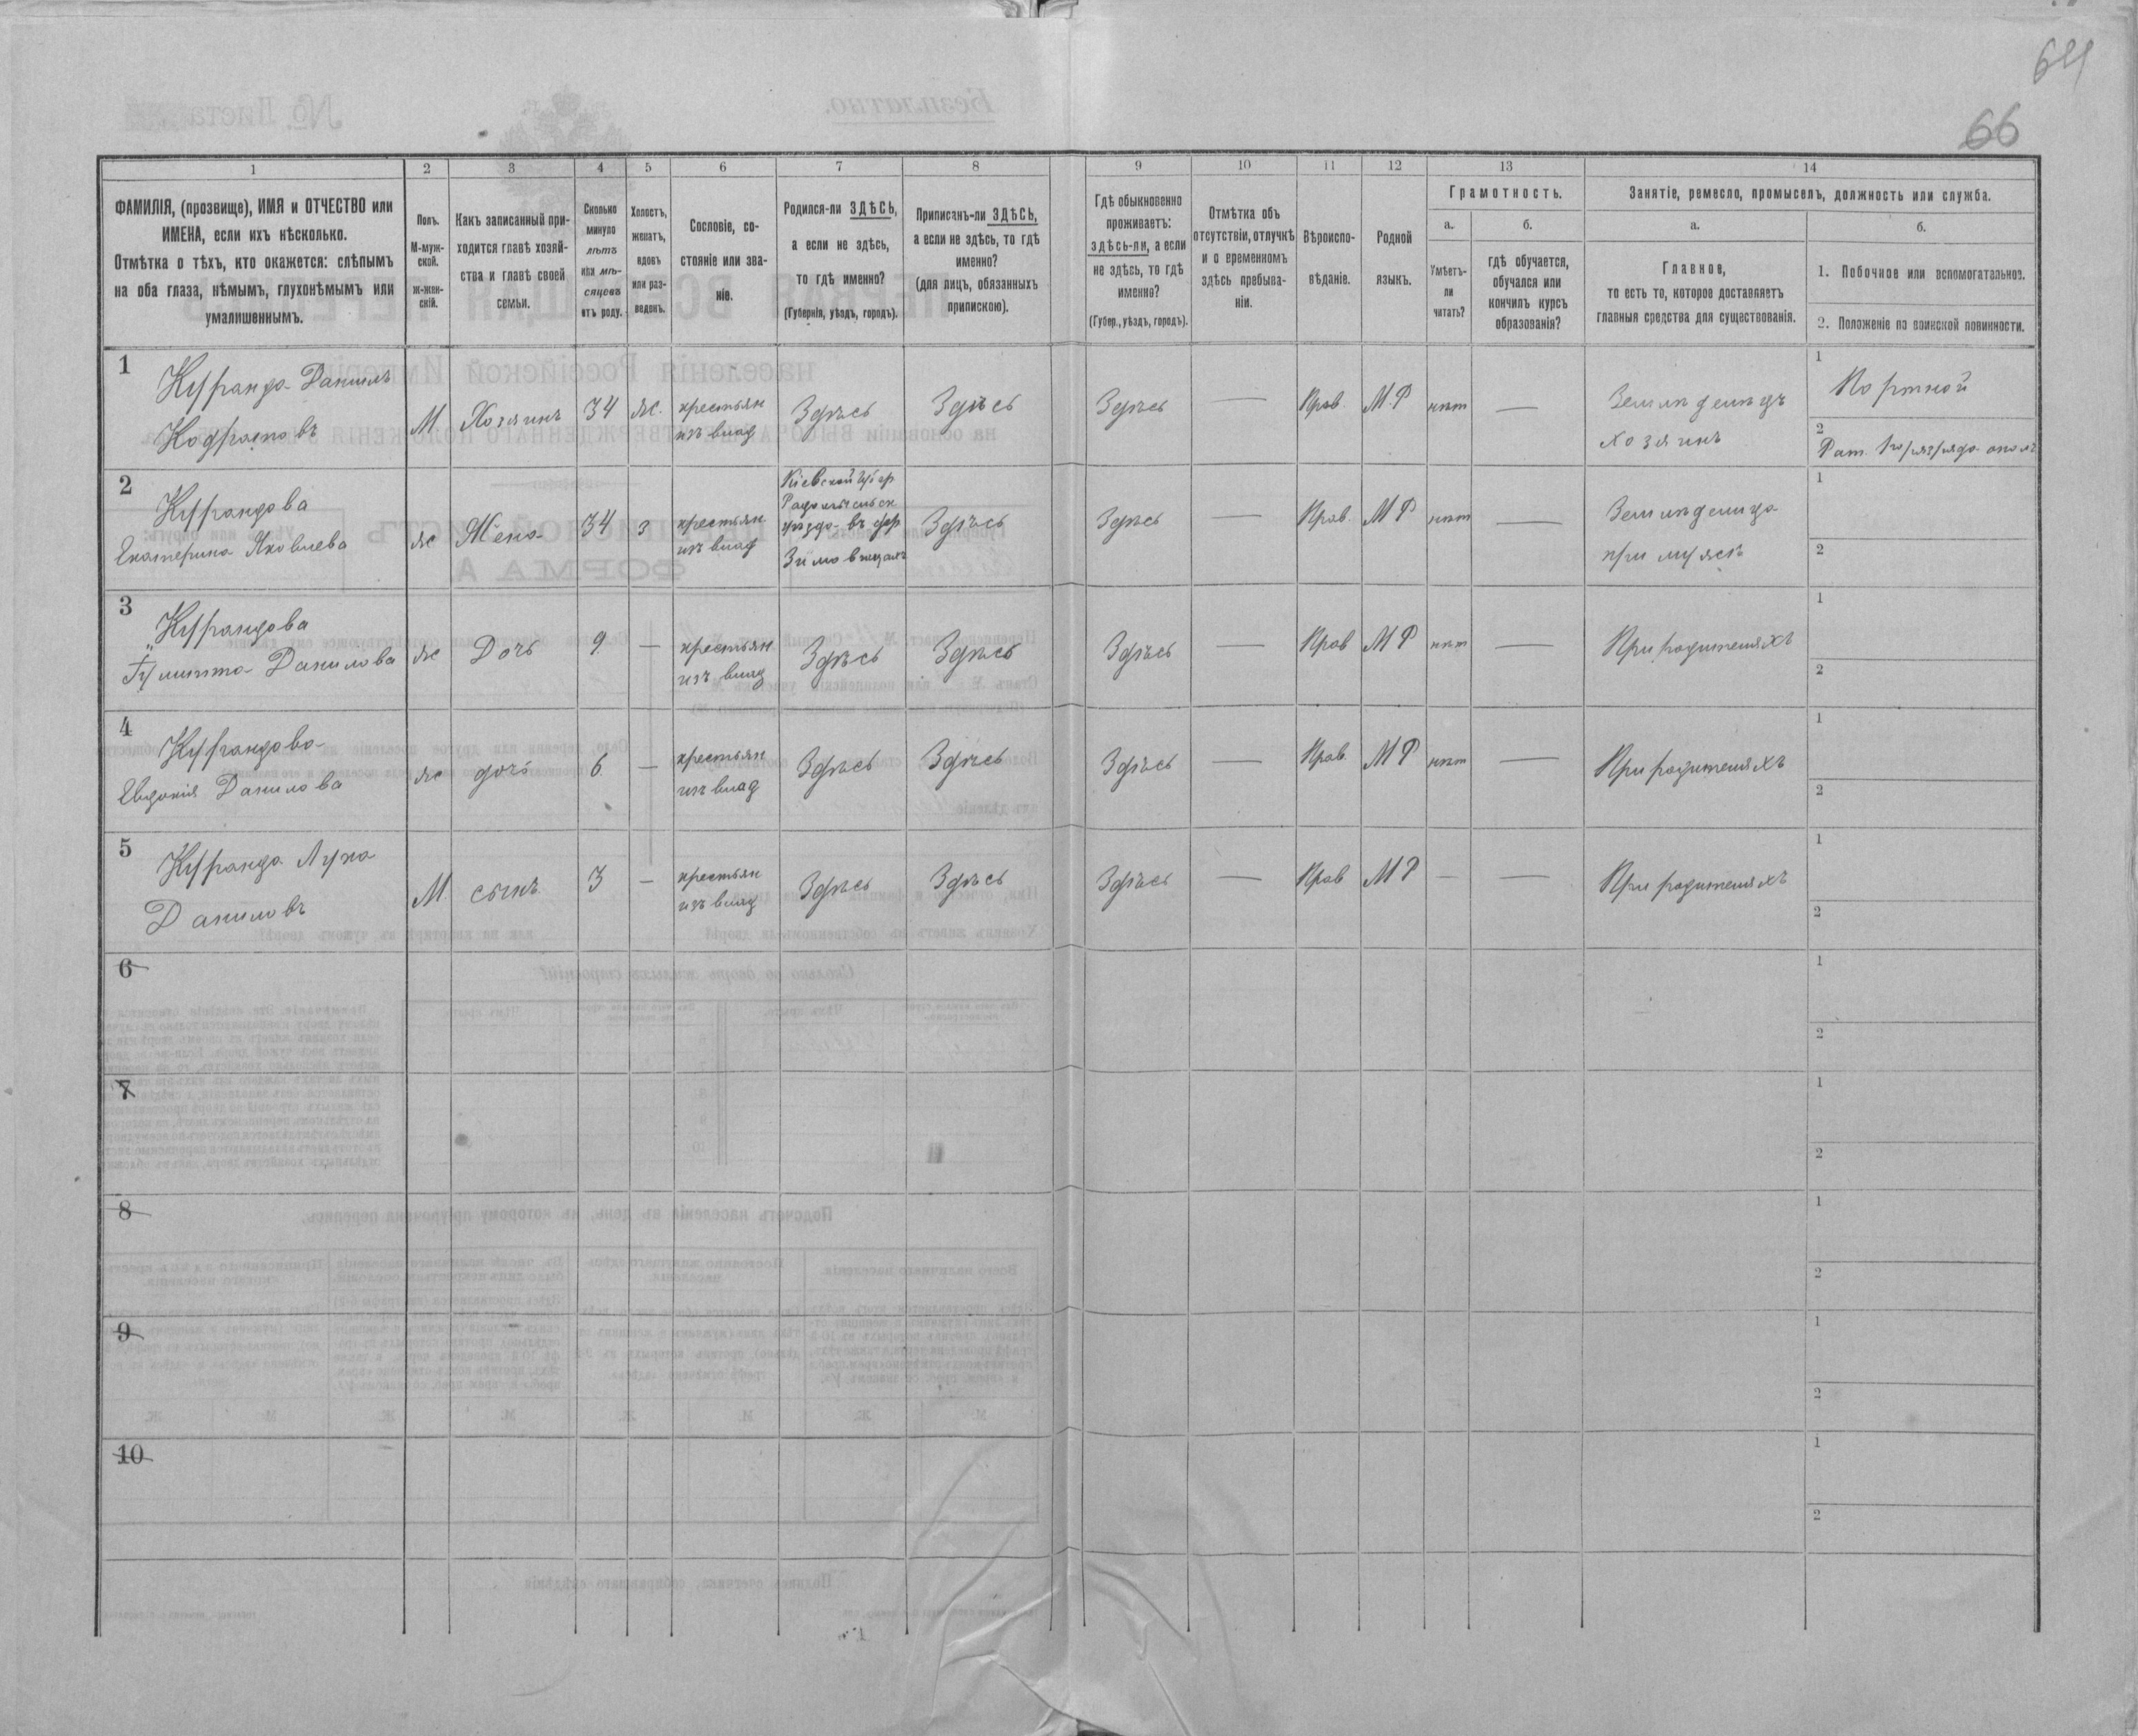 64
66
1
2
3
4
5
6
7
8
9
10
11
12
13
14
ФАМИЛІЯ, (прозвище), ИМЯ и ОТЧЕСТВО или
ИМЕНА, если ихъ нѣсколько.
Отмѣтка о тѣхъ, кто окажется: слѣпымъ
на оба глаза, нѣмымъ, глухонѣмымъ или
умалишеннымъ.
Полъ.
М-муж-
ской.
Ж-жен-
скій.
Какъ записанный при-
ходится главѣ хозяй-
ства и главѣ своей
семьи.
Сколько
минуло
лѣтъ
или мѣ-
сяцевъ
отъ роду.
Холостъ,
женатъ,
вдовъ
или раз-
веденъ.
Сословіе, со-
стояніе или зва-
ніе.
Родился-ли ЗДѢСЬ,
а если не здѣсь,
то гдѣ именно?
(Губернія, уѣздъ, городъ).
Приписанъ-ли ЗДѢСЬ,
а если не здѣсь, то гдѣ
именно?
(для лицъ, обязанныхъ
припискою).
Гдѣ обыкновенно
проживаетъ:
здѣсь-ли, а если
не здѣсь, то гдѣ
именно?
(Губер., уѣздъ, городъ).
Отмѣтка объ
отсутствіи, отлучкѣ
и о временномъ
здѣсь пребыва-
ніи.
Вѣроиспо-
вѣданіе.
Родной
языкъ.
Грамотность.
а.
Умѣетъ-
ли
читать?
б.
гдѣ обучается,
обучался или
кончилъ курсъ
образованія?
Занятіе, ремесло, промыселъ, должность или служба.
а.
Главное,
то есть то, которое доставляетъ
главныя средства для существованія.
б.
1. Побочное или вспомогательное.
2. Положеніе по воинской повинности.
1
Даниль
М
Хозяинъ
34
ж.
крестьян
изъ влад
Здѣсь
Здѣсь
Здѣсь
—
Прав.
М.Р
нѣт
—
Землѣделецъ
хозяинъ
1
Портной
2
Рат.
2
Екатерина Яковлева
ж
Жена
34
з
крестьян
изъ влад
Кіевской губер
Радомысльск
уѣзда въ дер
Здѣсь
Здѣсь
—
Прав.
М Р
нѣт
—
Землѣделица
при мужѣ
1
2
3
Данилова
ж
Дочь
9
—
крестьян
изъ влад
Здѣсь
Здѣсь
Здѣсь
—
Прав
М Р
нѣт
—
При родителяхъ
1
2
4
Евдокія Данилова
ж
дочь
6.
—
крестьян
изъ влад
Здѣсь
Здѣсь
Здѣсь
—
Прав.
М Р
нѣт
—
При родителяхъ
1
2
5
Лука
Даниловъ
М.
сынъ
3
—
крестьян
изъ влад
Здѣсь
Здѣсь
Здѣсь
—
Прав
М Р
—
—
При родителяхъ
1
2
6
1
2
7
1
2
8
1
2
9
1
2
10
1
2